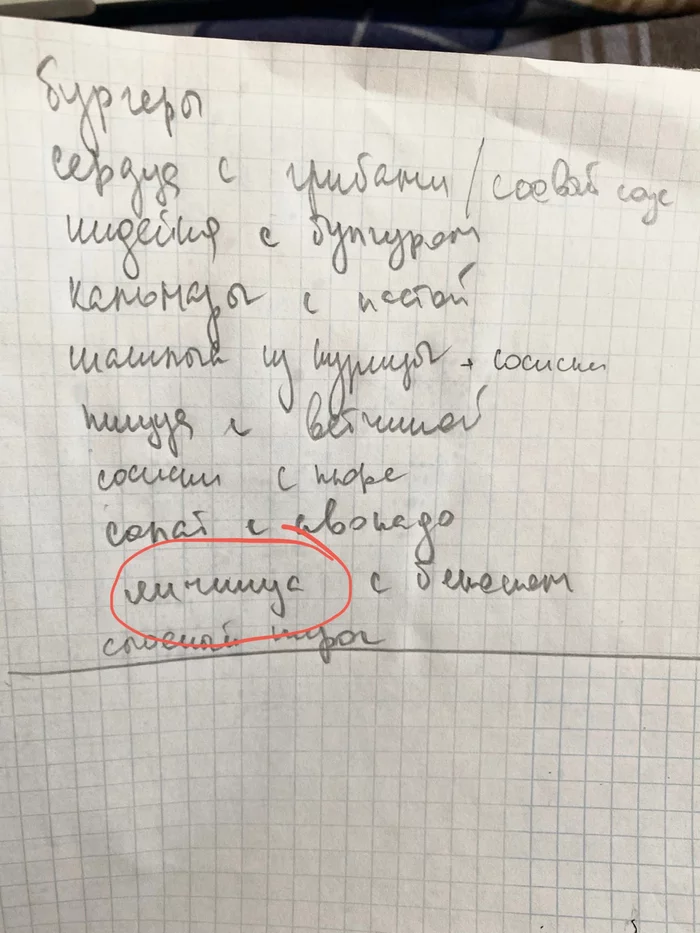 бургеры
сердца с грибами / соевый соус
индейка с булгуром
кальмары с пастой
шашлык из курицы + сосиски
пицца с ветчиной
сосиски с пюре
салат с авокадо
яичница с беконом
слоеный пирог